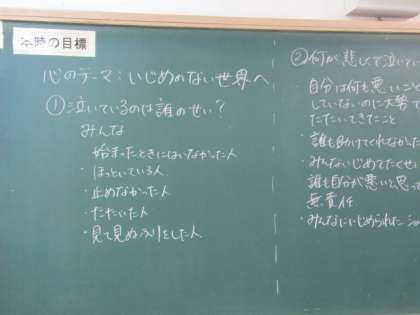 本時の目標
心のテーマ：いじめのない世界へ
①泣いているのは誰のせい？
みんな
始まったときにはいなかった人
・ほっといている人
・止めなかった人
・たたいた人
・見て見ぬふりをした人
②何が悲しくて泣いてい
・自分は何も悪いこと
していないのに大勢
たたいてきたこと
・誰も助けてくれなかった
・みんないじめてたくせ
誰も自分が悪いと思っ
無責任
・みんなにいじめられた